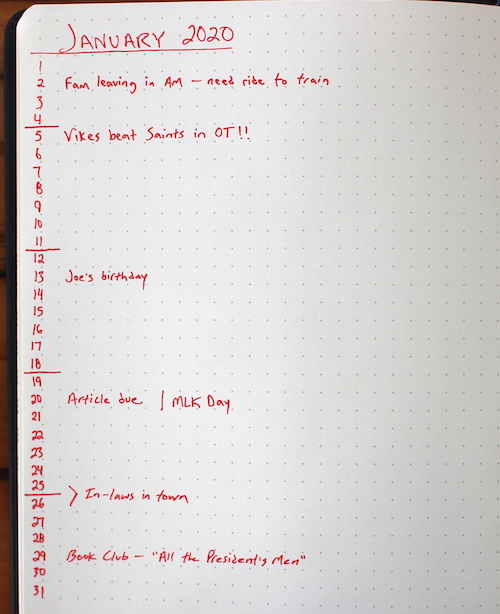 JANUARY 2020
1
2 Fam leaving in AM – need ride to train
3
4
5 Vikes beat Saints in OT!!
6
7
8
9
10
11
12
13 Joe's birthday
14
15
16
17
18
19
20 Article due | MLK Day
21
22
23
24
25
26 > In-laws in town
27
28
29 Book Club – "All the President's Men"
30
31